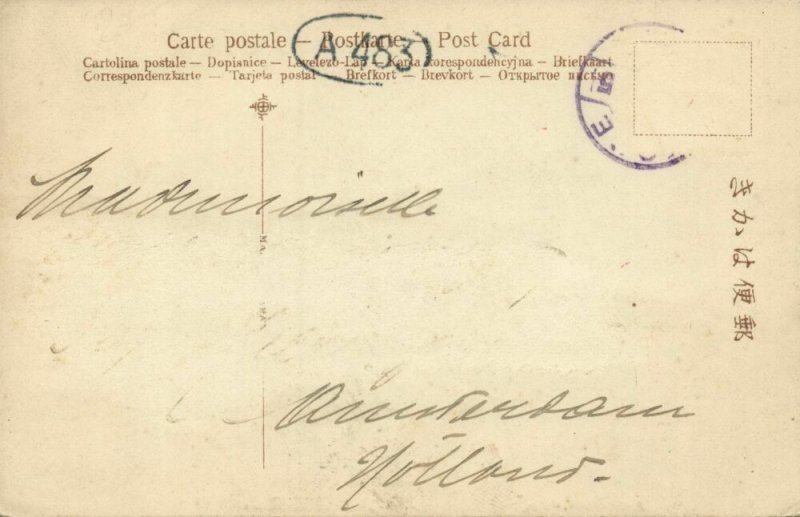 Carte postale — Postkarte — Post Card
A 483
Cartolina postale — Dopisnice — Levelezö-Lap — Karta korespondencyjna — Briefkaart
Correspondenzkarte — Tarjeta postal — Brefkort — Brevkort — Открытое письмо
Mademoiselle
Amsterdam
Holland.
きかは便郵